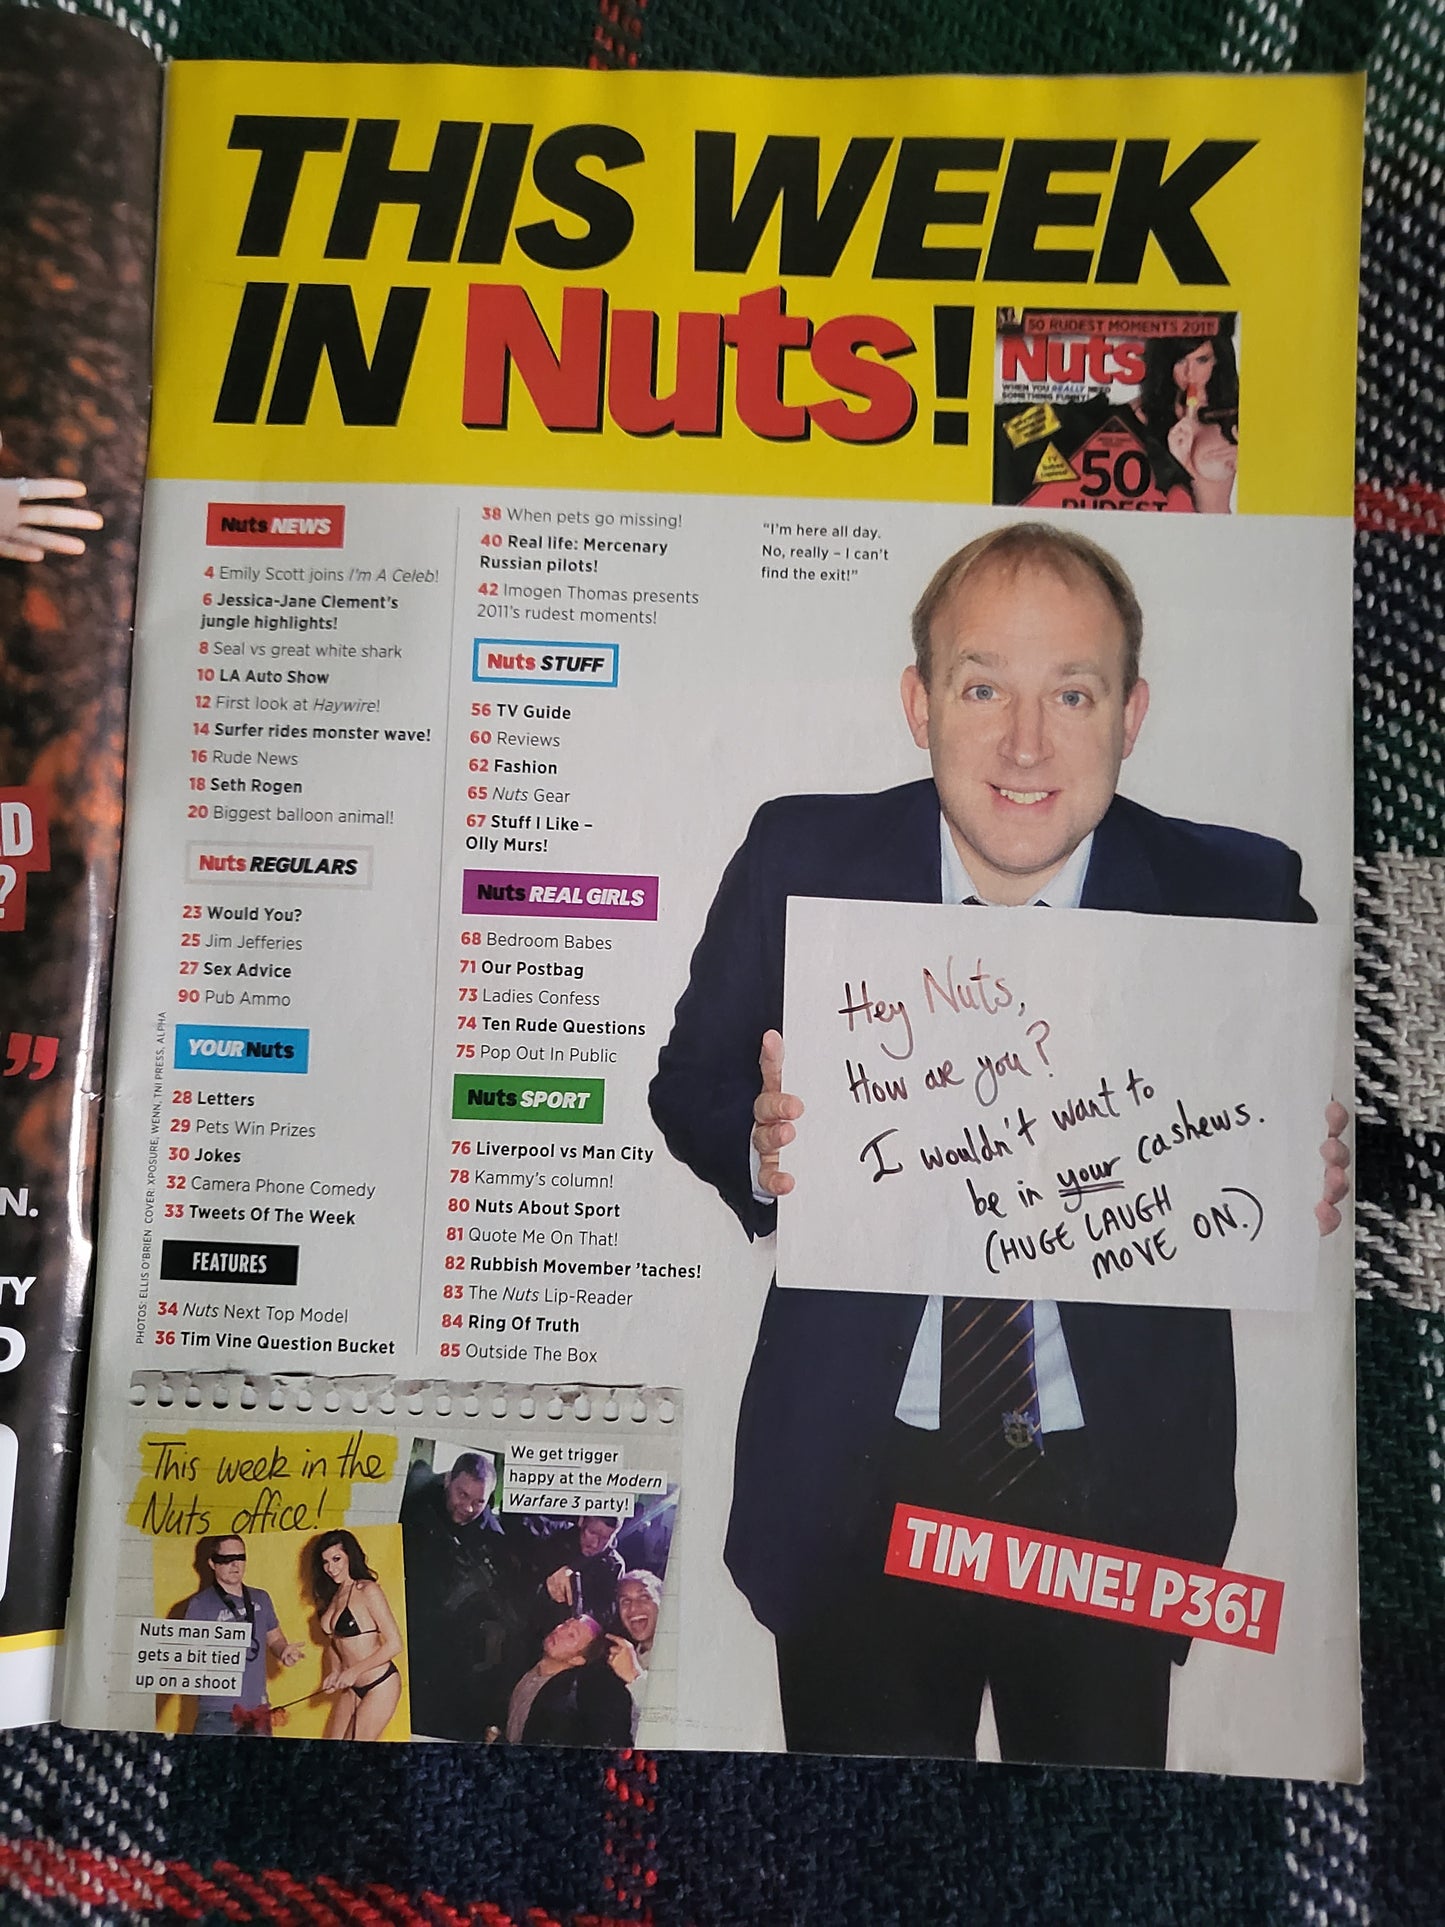 THIS WEEK
IN Nuts!
50 RUDEST MOMENTS 2011!
Nuts
WHEN YOU REALLY NEED
SOMETHING FUNNY!
50
RUDEST
Nuts NEWS
4 Emily Scott joins I'm A Celeb!
6 Jessica-Jane Clement's
jungle highlights!
8 Seal vs great white shark
10 LA Auto Show
12 First look at Haywire!
14 Surfer rides monster wave!
16 Rude News
18 Seth Rogen
20 Biggest balloon animal!
Nuts REGULARS
23 Would You?
25 Jim Jefferies
27 Sex Advice
90 Pub Ammo
YOUR Nuts
28 Letters
29 Pets Win Prizes
30 Jokes
32 Camera Phone Comedy
33 Tweets Of The Week
FEATURES
34 Nuts Next Top Model
36 Tim Vine Question Bucket
38 When pets go missing!
40 Real life: Mercenary
Russian pilots!
42 Imogen Thomas presents
2011's rudest moments!
Nuts STUFF
56 TV Guide
60 Reviews
62 Fashion
65 Nuts Gear
67 Stuff I Like –
Olly Murs!
Nuts REAL GIRLS
68 Bedroom Babes
71 Our Postbag
73 Ladies Confess
74 Ten Rude Questions
75 Pop Out In Public
Nuts SPORT
76 Liverpool vs Man City
78 Kammy's column!
80 Nuts About Sport
81 Quote Me On That!
82 Rubbish Movember 'taches!
83 The Nuts Lip-Reader
84 Ring Of Truth
85 Outside The Box
"I'm here all day.
No, really – I can't
find the exit!"
Hey Nuts,
How are you?
I wouldn't want to
be in your cashews.
(HUGE LAUGH
MOVE ON.)
TIM VINE! P36!
PHOTOS: ELLIS O'BRIEN COVER: XPOSURE, WENN, TNI PRESS, ALPHA
This week in the
Nuts office!
Nuts man Sam
gets a bit tied
up on a shoot
We get trigger
happy at the Modern
Warfare 3 party!
D
?
"
N.
TY